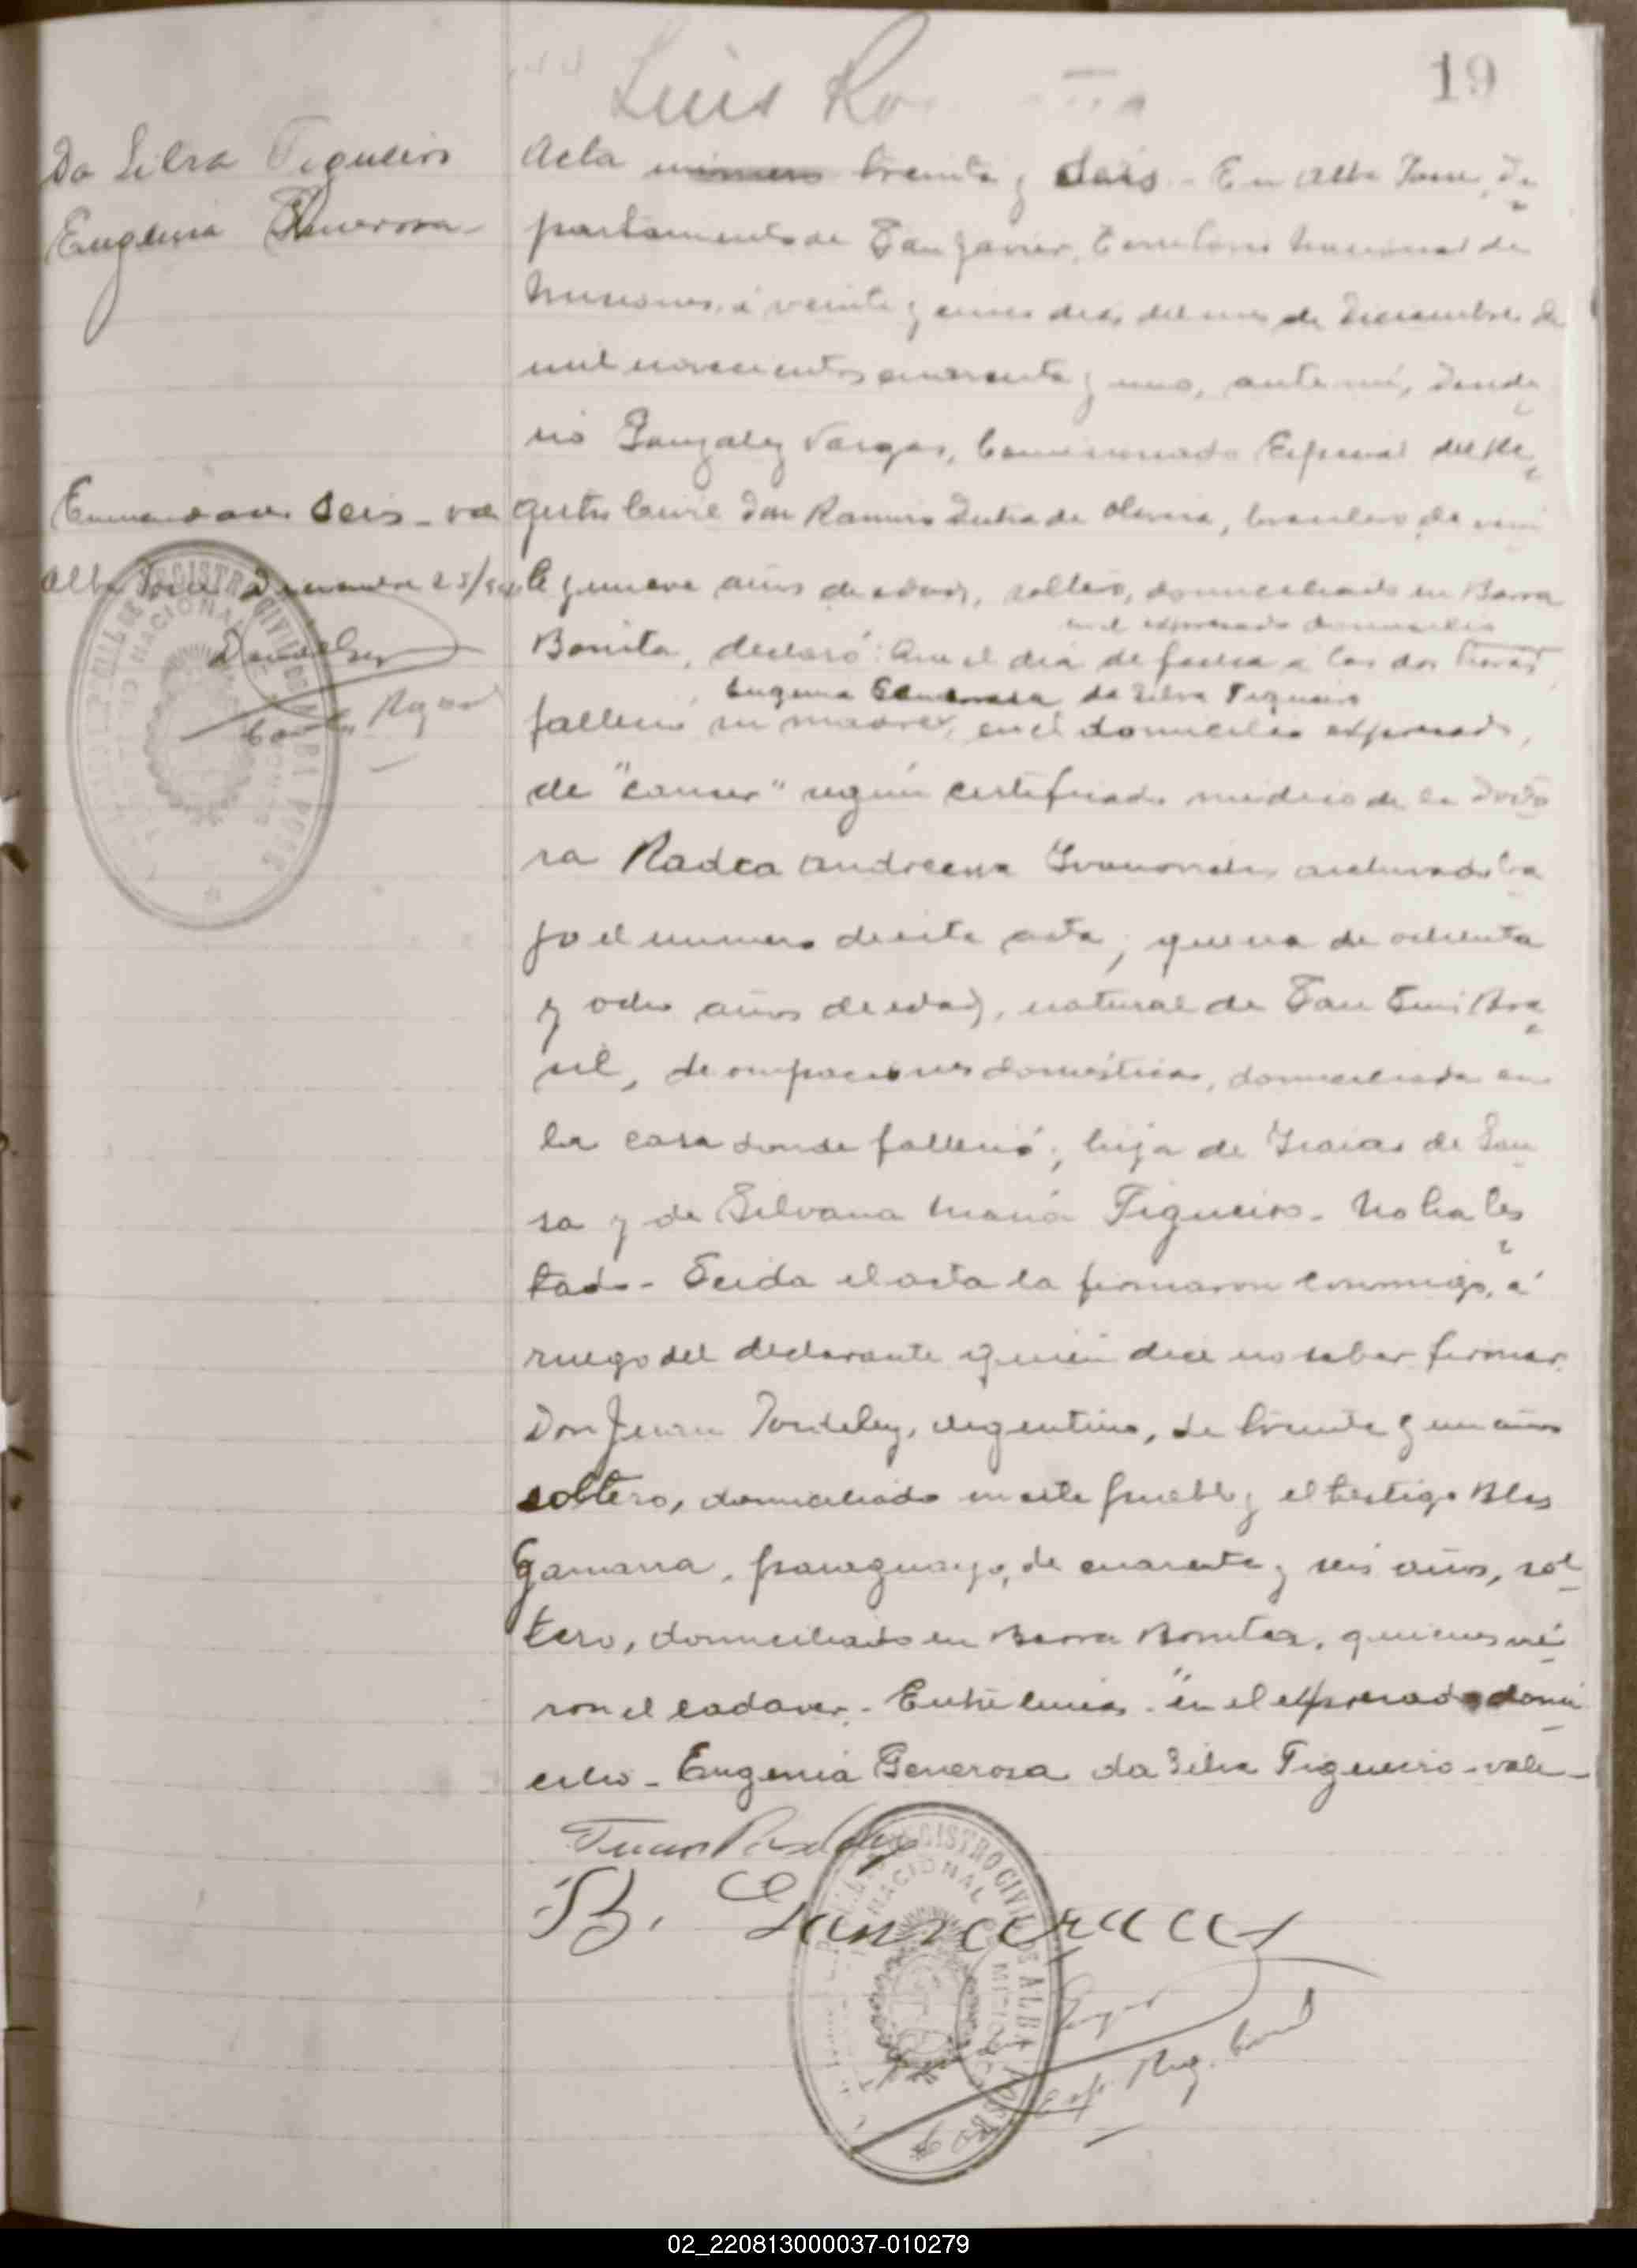 19
Luis
Da Silva Figueiro
Eugenia Generosa
Acta número treinta y seis. - En Alba Posse, De
partamento de San Javier, Territorio Nacional de
Misiones, á veinte y cinco dias del mes de Diciembre de
mil novecientos cuarenta y uno, ante mí, Deside
rio Gonzalez Vargas, Comisionado Especial del Re
Enmendado seis - vale
gistro Civil Don Ramiro Dutra de Olivera, brasilero, de vein
Alba Posse Diciembre 25/941
te y nueve años de edad, soltero, domiciliado en Barra
en el expresado domicilio
Bonita, declaró: Que el dia de fecha a las dos horas
Eugenia Generosa da Silva Figueiro
falleció su madre, en el domicilio expresado,
de "cancer" según certificado médico de la Docto
ra Radca Andreewa archivado ba
jo el numero de esta acta; que era de ochenta
y ocho años de edad, natural de San Luis Bra
sil, de ocupaciones domésticas, domiciliada en
la casa donde falleció; hija de Isaias de Sou
sa y de Silvana María Figueiro - No ha tes
tado - Leida el acta la firmaron conmigo, á
ruego del declarante quien dice no saber firmar
Don Juan, argentino, de treinta y un años
soltero, domiciliado en este pueblo y el testigo Blas
Gamarra, paraguayo, de cuarenta y seis años, sol
tero, domiciliado en Barra Bonita, quienes vie
ron el cadaver. - Entre lineas - "en el expresado domi
cilio - Eugenia Generosa da Silva Figueiro - vale -
B. Gamarra
REGISTRO CIVIL DE ALBA POSSE
NACIONAL
MISIONES
02_220813000037-010279